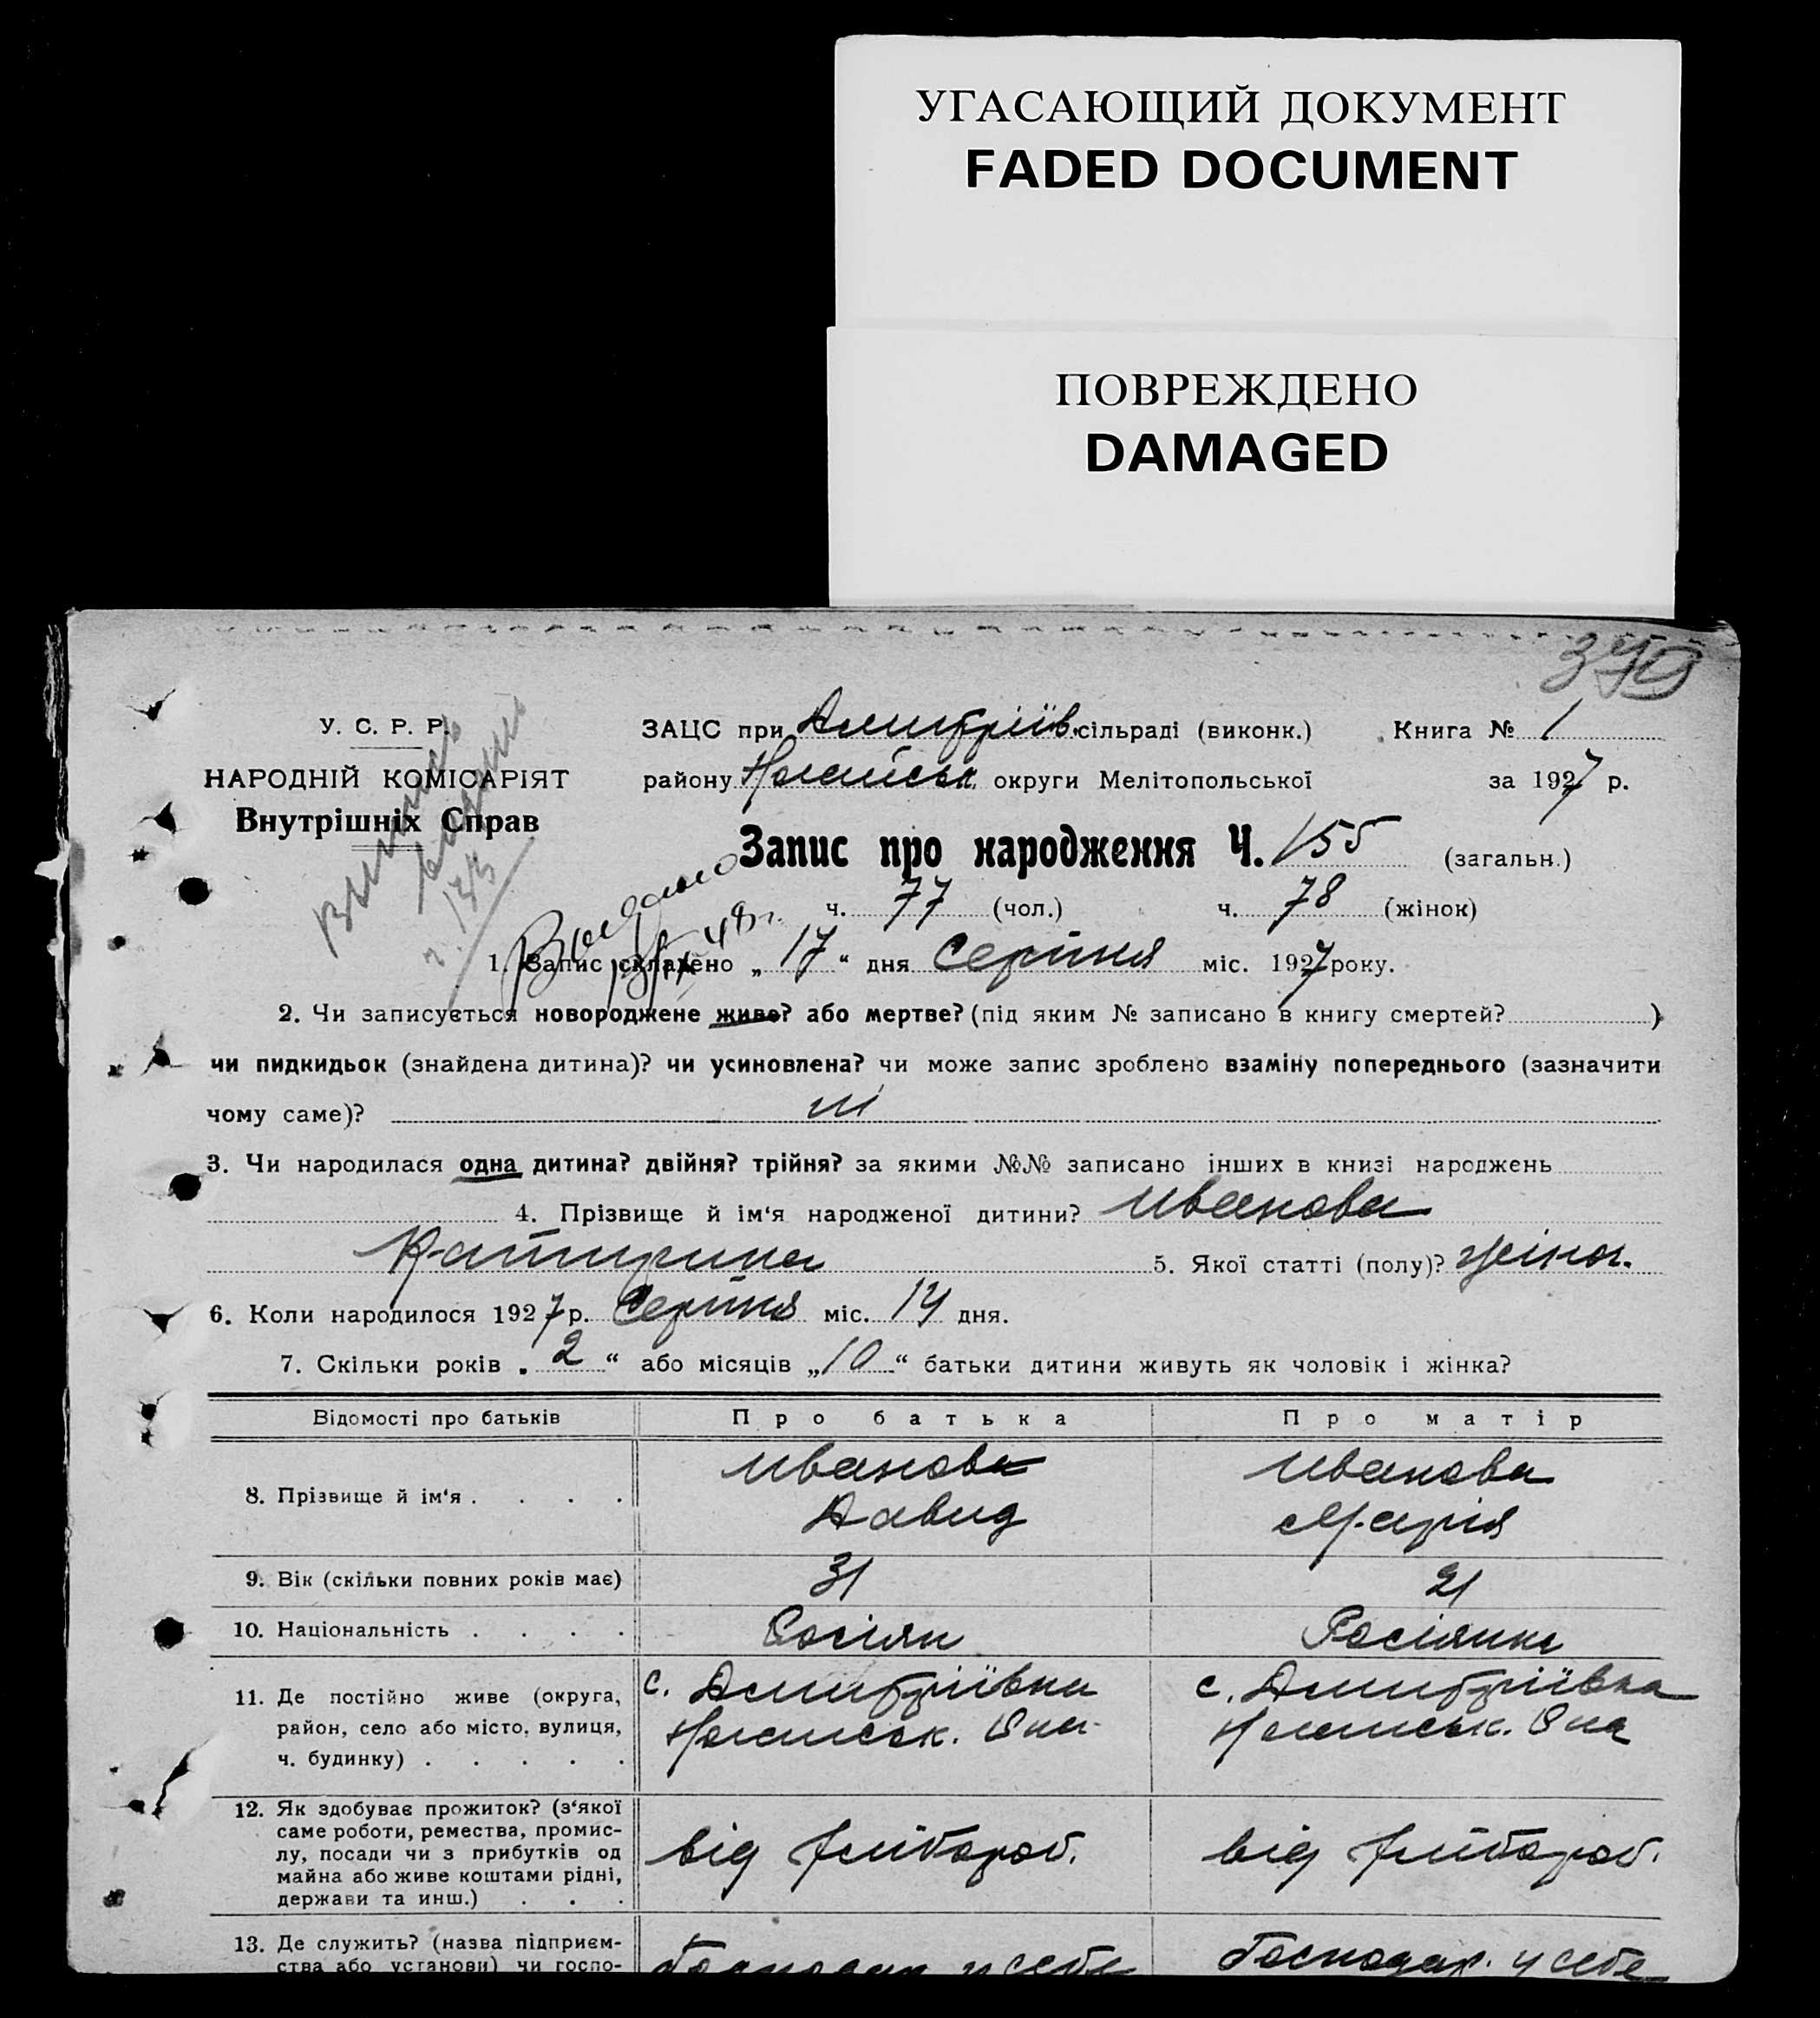 УГАСАЮЩИЙ ДОКУМЕНТ
FADED DOCUMENT
ПОВРЕЖДЕНО
DAMAGED
379
У. С. Р. Р.
НАРОДНІЙ КОМІСАРІЯТ
Внутрішніх Справ
ЗАЦС при Дмитріїв. сільраді (виконк.) Книга № 1
району Ногайськ. округи Мелітопольської за 1927 р.
Запис про народження Ч. 155 (загальн.)
ч. 77 (чол.) ч. 78 (жінок)
Выдано
1. Запис складено „ 17 “ дня Серпня міс. 1927 року.
2. Чи записується новороджене живе? або мертве? (під яким № записано в книгу смертей? )
чи пидкидьок (знайдена дитина)? чи усиновлена? чи може запис зроблено взаміну попереднього (зазначити
чому саме)? ні
3. Чи народилася одна дитина? двійня? трійня? за якими №№ записано інших в книзі народжень
4. Прізвище й ім‘я народженої дитини? Иванова
Катирина 5. Якої статті (полу)? жіноч.
6. Коли народилося 1927 р. Серпня міс. 14 дня.
7. Скільки років „ 2 “ або місяців „ 10 “ батьки дитини живуть як чоловік і жінка?
Відомості про батьків Про батька Про матір
8. Прізвище й ім‘я . . . . Иванова Иванова
Давид Марія
9. Вік (скільки повних років має) 31 21
10. Національність . . . . Росіян Росіянка
11. Де постійно живе (округа, с. Дмитріївка с. Дмитріївка
район, село або місто, вулиця, Ногайськ. Р-на Ногайськ. Р-на
ч. будинку) . . . . .
12. Як здобуває прожиток? (з‘якої
саме роботи, ремества, промис-
лу, посади чи з прибутків од від хлібороб. від хлібороб.
майна або живе коштами рідні,
держави та инш.) . . .
13. Де служить? (назва підприєм- Господар. у себе Господар. у себе
ства або установи) чи госпо-